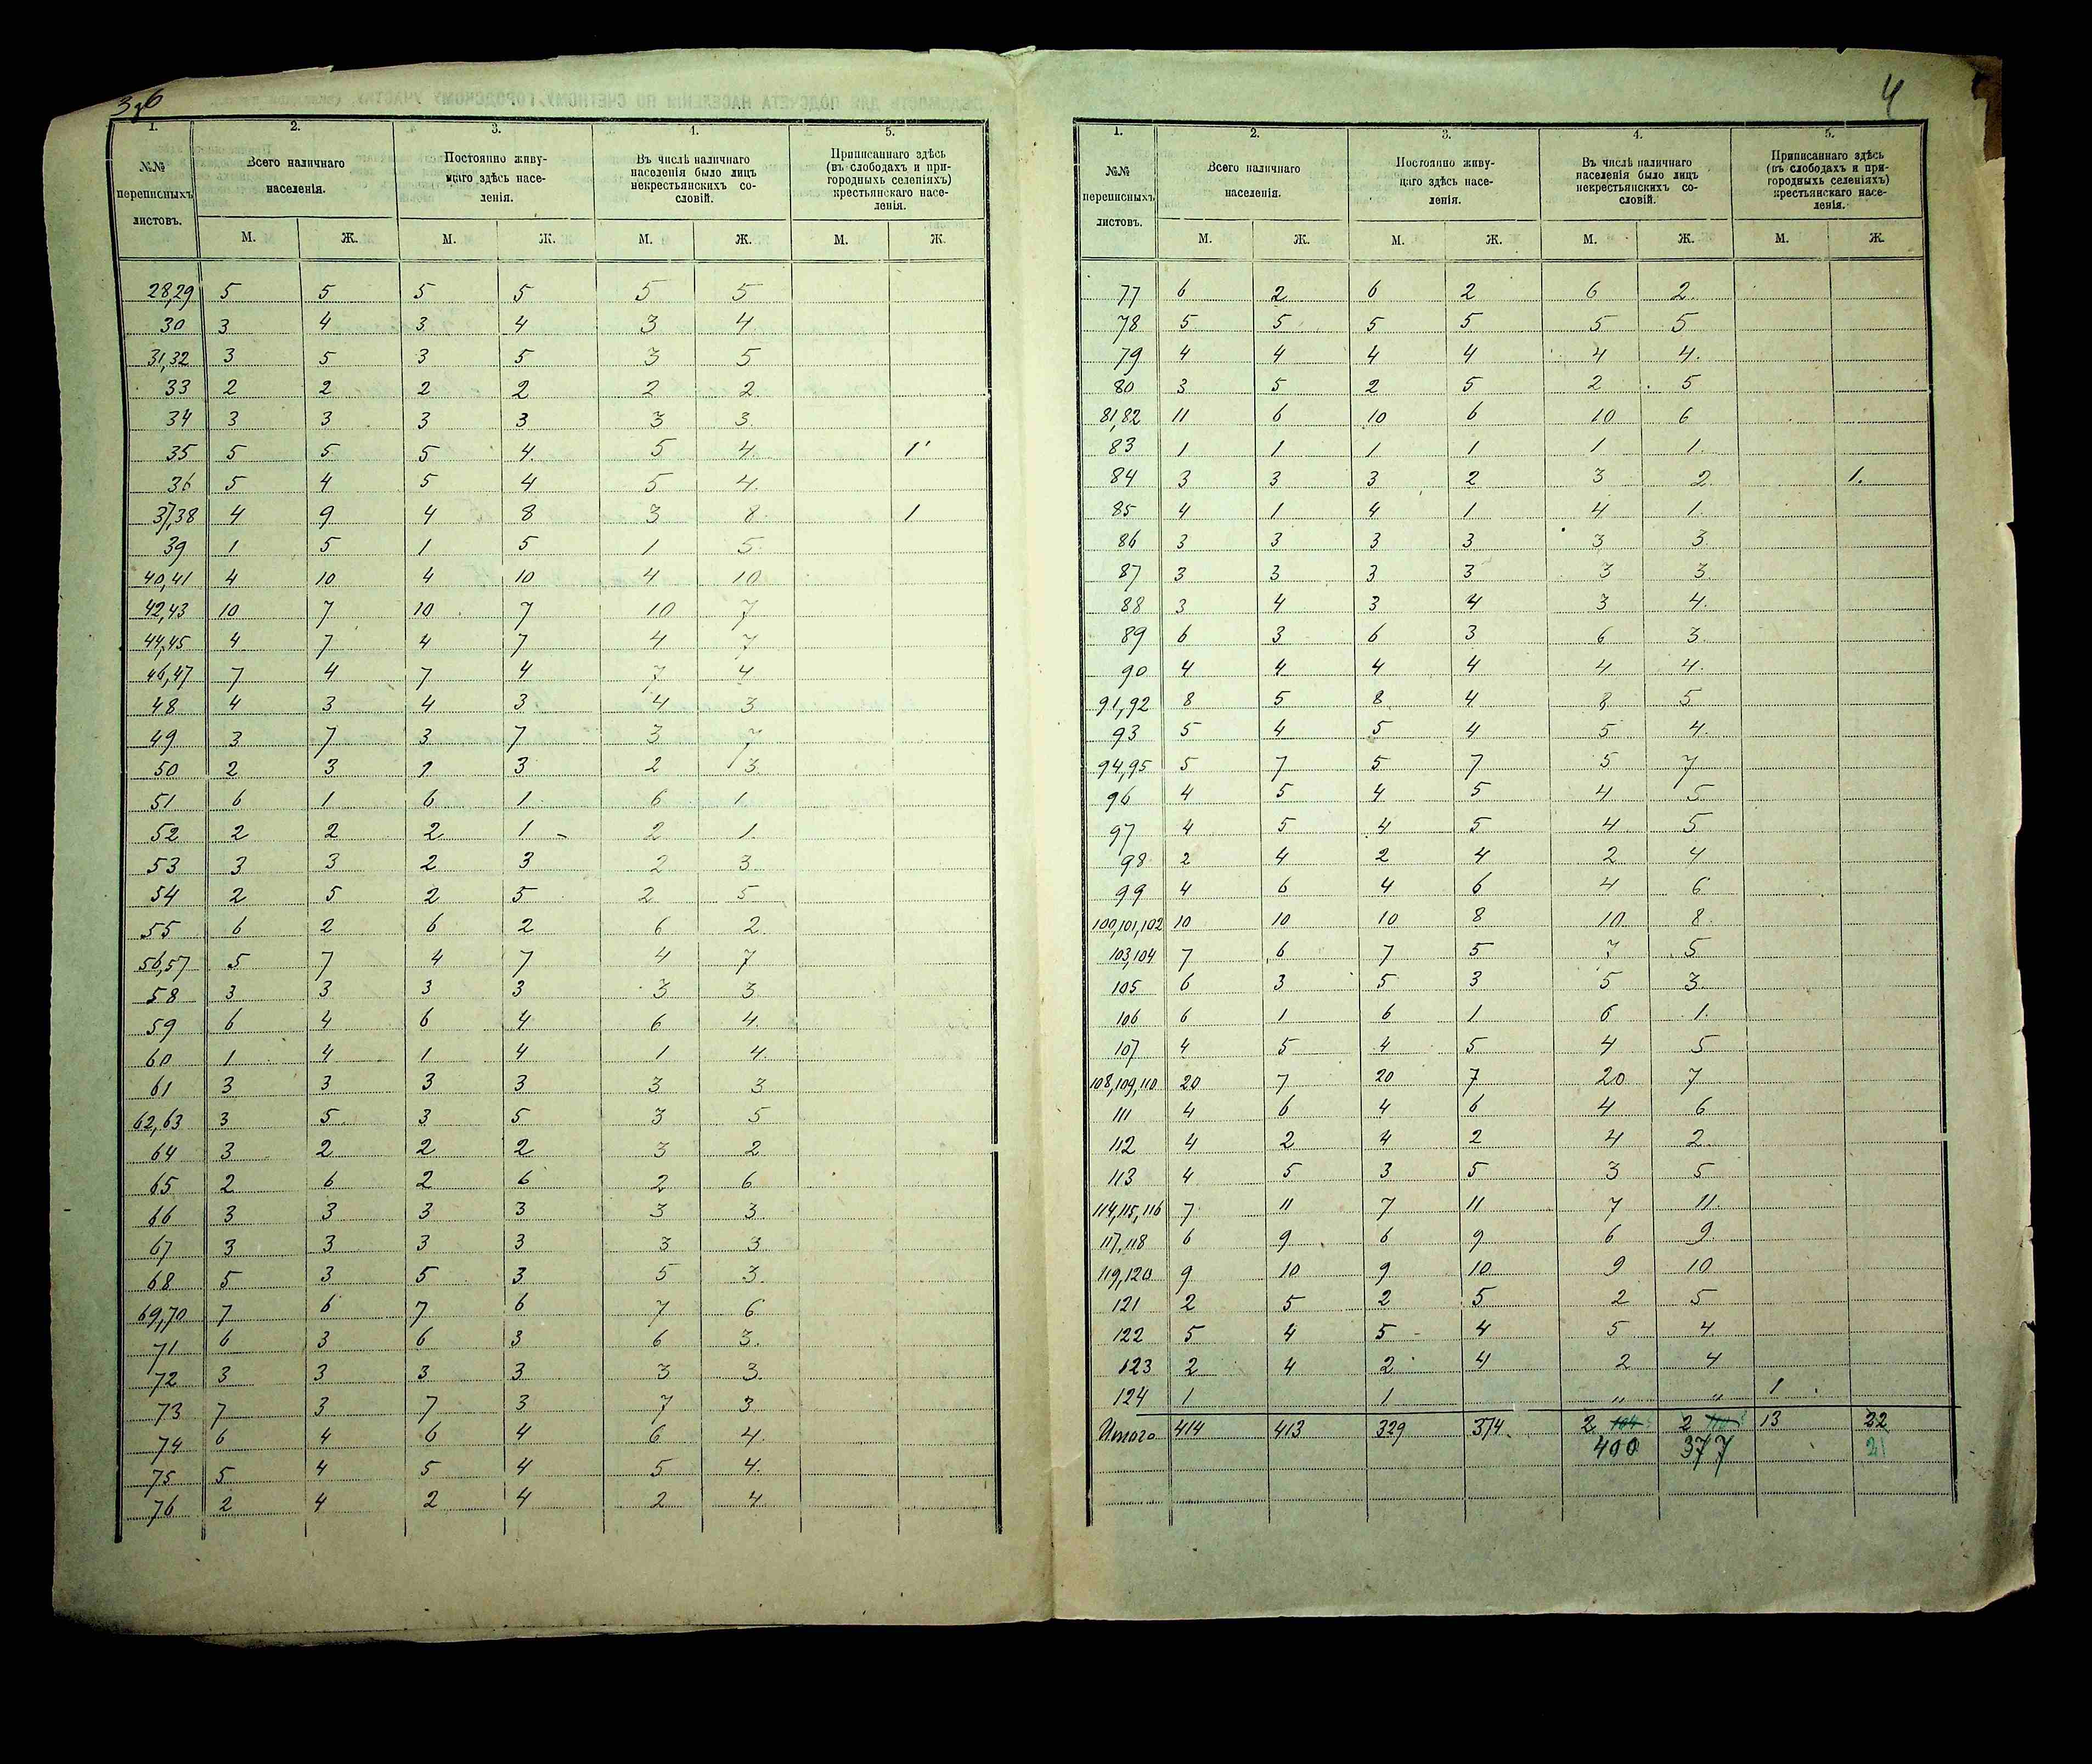 3 об
1. 2. 3. 4. 5.
№№ переписныхъ листовъ.
Всего наличнаго населенія.
Постоянно живущаго здѣсь населенія.
Въ числѣ наличнаго населенія было лицъ некрестьянскихъ сословій.
Приписаннаго здѣсь (въ слободахъ и пригородныхъ селеніяхъ) крестьянскаго населенія.
М. Ж. М. Ж. М. Ж. М. Ж.
28,29 5 5 5 5 5 5
30 3 4 3 4 3 4
31,32 3 5 3 5 3 5
33 2 2 2 2 2 2
34 3 3 3 3 3 3
35 5 5 5 4 5 4 1
36 5 4 5 4 5 4
37,38 4 9 4 8 3 8 1
39 1 5 1 5 1 5
40,41 4 10 4 10 4 10
42,43 10 7 10 7 10 7
44,45 4 7 4 7 4 7
46,47 7 4 7 4 7 4
48 4 3 4 3 4 3
49 3 7 3 7 3 7
50 2 3 3 2 3
51 6 1 6 1 6 1
52 2 2 2 1 2 1
53 3 3 2 3 2 3
54 2 5 2 5 2 5
55 6 2 6 2 6 2
56,57 5 7 4 7 4 7
58 3 3 3 3 3 3
59 6 4 6 4 6 4
60 1 4 1 4 1 4
61 3 3 3 3 3 3
62,63 3 5 3 5 3 5
64 3 2 2 2 3 2
65 2 6 2 6 2 6
66 3 3 3 3 3 3
67 3 3 3 3 3 3
68 5 3 5 3 5 3
69,70 7 6 7 6 7 6
71 6 3 6 3 6 3
72 3 3 3 3 3 3
73 7 3 7 3 7 3
74 6 4 6 4 6 4
75 5 4 5 4 5 4
76 2 4 2 4 2 4
4
1. 2. 3. 4. 5.
№№ переписныхъ листовъ.
Всего наличнаго населенія.
Постоянно живущаго здѣсь населенія.
Въ числѣ наличнаго населенія было лицъ некрестьянскихъ сословій.
Приписаннаго здѣсь (въ слободахъ и пригородныхъ селеніяхъ) крестьянскаго населенія.
М. Ж. М. Ж. М. Ж. М. Ж.
77 6 2 6 2 6 2
78 5 5 5 5 5 5
79 4 4 4 4 4 4
80 3 5 2 5 2 5
81,82 11 6 10 6 10 6
83 1 1 1 1 1 1
84 3 3 3 2 3 2 1
85 4 1 4 1 4 1
86 3 3 3 3 3 3
87 3 3 3 3 3 3
88 3 4 3 4 3 4
89 6 3 6 3 6 3
90 4 4 4 4 4 4
91,92 8 5 8 4 8 5
93 5 4 5 4 5 4
94,95 5 7 5 7 5 7
96 4 5 4 5 4 5
97 4 5 4 5 4 5
98 2 4 2 4 2 4
99 4 6 4 6 4 6
100,101,102 10 10 10 8 10 8
103,104 7 6 7 5 7 5
105 6 3 5 3 5 3
106 6 1 6 1 6 1
107 4 5 4 5 4 5
108,109,110 20 7 20 7 20 7
111 4 6 4 6 4 6
112 4 2 4 2 4 2
113 4 5 3 5 3 5
114,115,116 7 11 7 11 7 11
117,118 6 9 6 9 6 9
119,120 9 10 9 10 9 10
121 2 5 2 5 2 5
122 5 4 5 4 5 4
123 2 4 2 4 2 4
124 1 1 " " 1
Итого 414 413 329 374 2 2 13 22
400 377 21